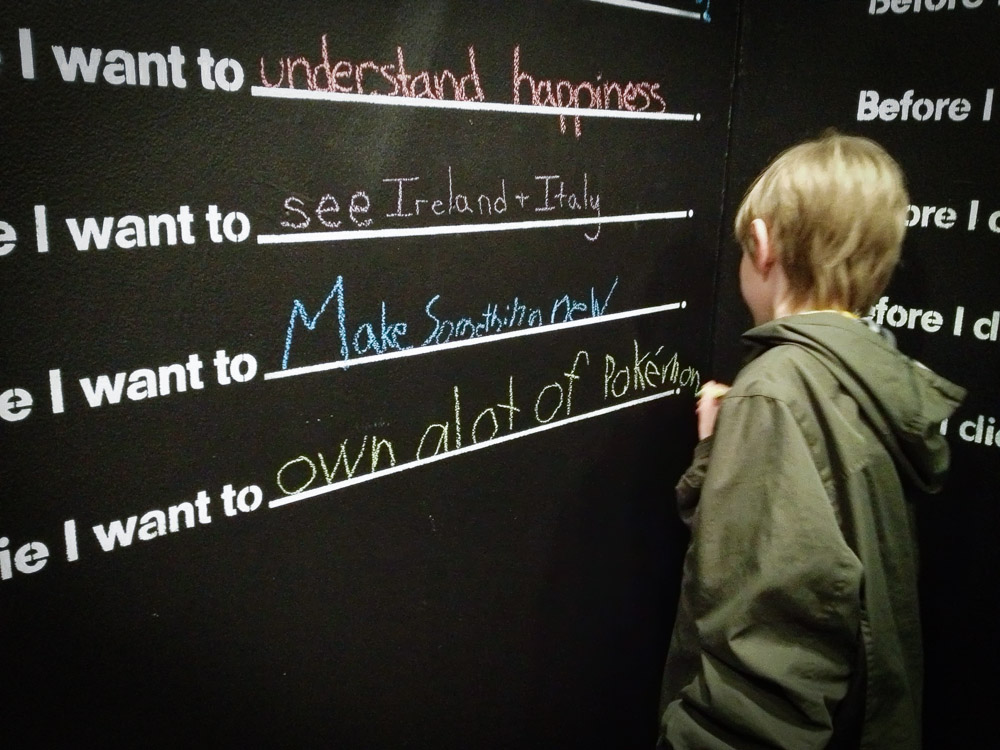 I want to understand happiness.
e I want to see Ireland + Italy.
e I want to Make Something new.
ie I want to own alot of Pokémon.
Before I
Before I
ore I
fore I di
I die